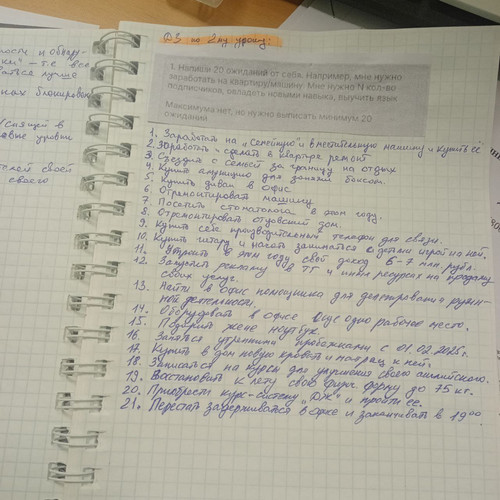 ДЗ по 2му уроку:
1. Напиши 20 ожиданий от себя. Например, мне нужно
заработать на квартиру/машину. Мне нужно N кол-во
подписчиков, овладеть новыми навыка, выучить язык
Максимума нет, но нужно выписать минимум 20
ожиданий
1. Заработать на "семейную" и вместительную машину и купить её
2. Заработать и сделать в квартире ремонт
3. Съездить с семьей за границу на отдых
4. Купить амуницию для занятий боксом.
5. Купить диван в офис
6. Отремонтировать машину
7. Посетить стоматолога в этом году.
8. Отремонтировать отцовский дом.
9. Купить себе производительный телефон для связи.
10. Купить гитару и начать заниматься с детьми игрой на ней.
11. Утроить в этом году свой доход 5-7 млн рубл.
12. Запустить рекламу в ТГ и иных ресурсах на продажу
своих услуг.
13. Найти в офис помощника для делегирования рутин-
ной деятельности.
14. Оборудовать в офисе еще одно рабочее место.
15. Подарить жене ноутбук.
16. Заняться утренними пробежками с 01.02.2025г.
17. Купить в дом новую кровать и матрац к ней.
18. Записаться на курсы для улучшения своего английского.
19. Восстановить к лету свою физич. форму до 75 кг.
20. Приобрести курс-систему "ДЖ" и пройти ее.
21. Перестать задерживаться в офисе и заканчивать в 19:00.